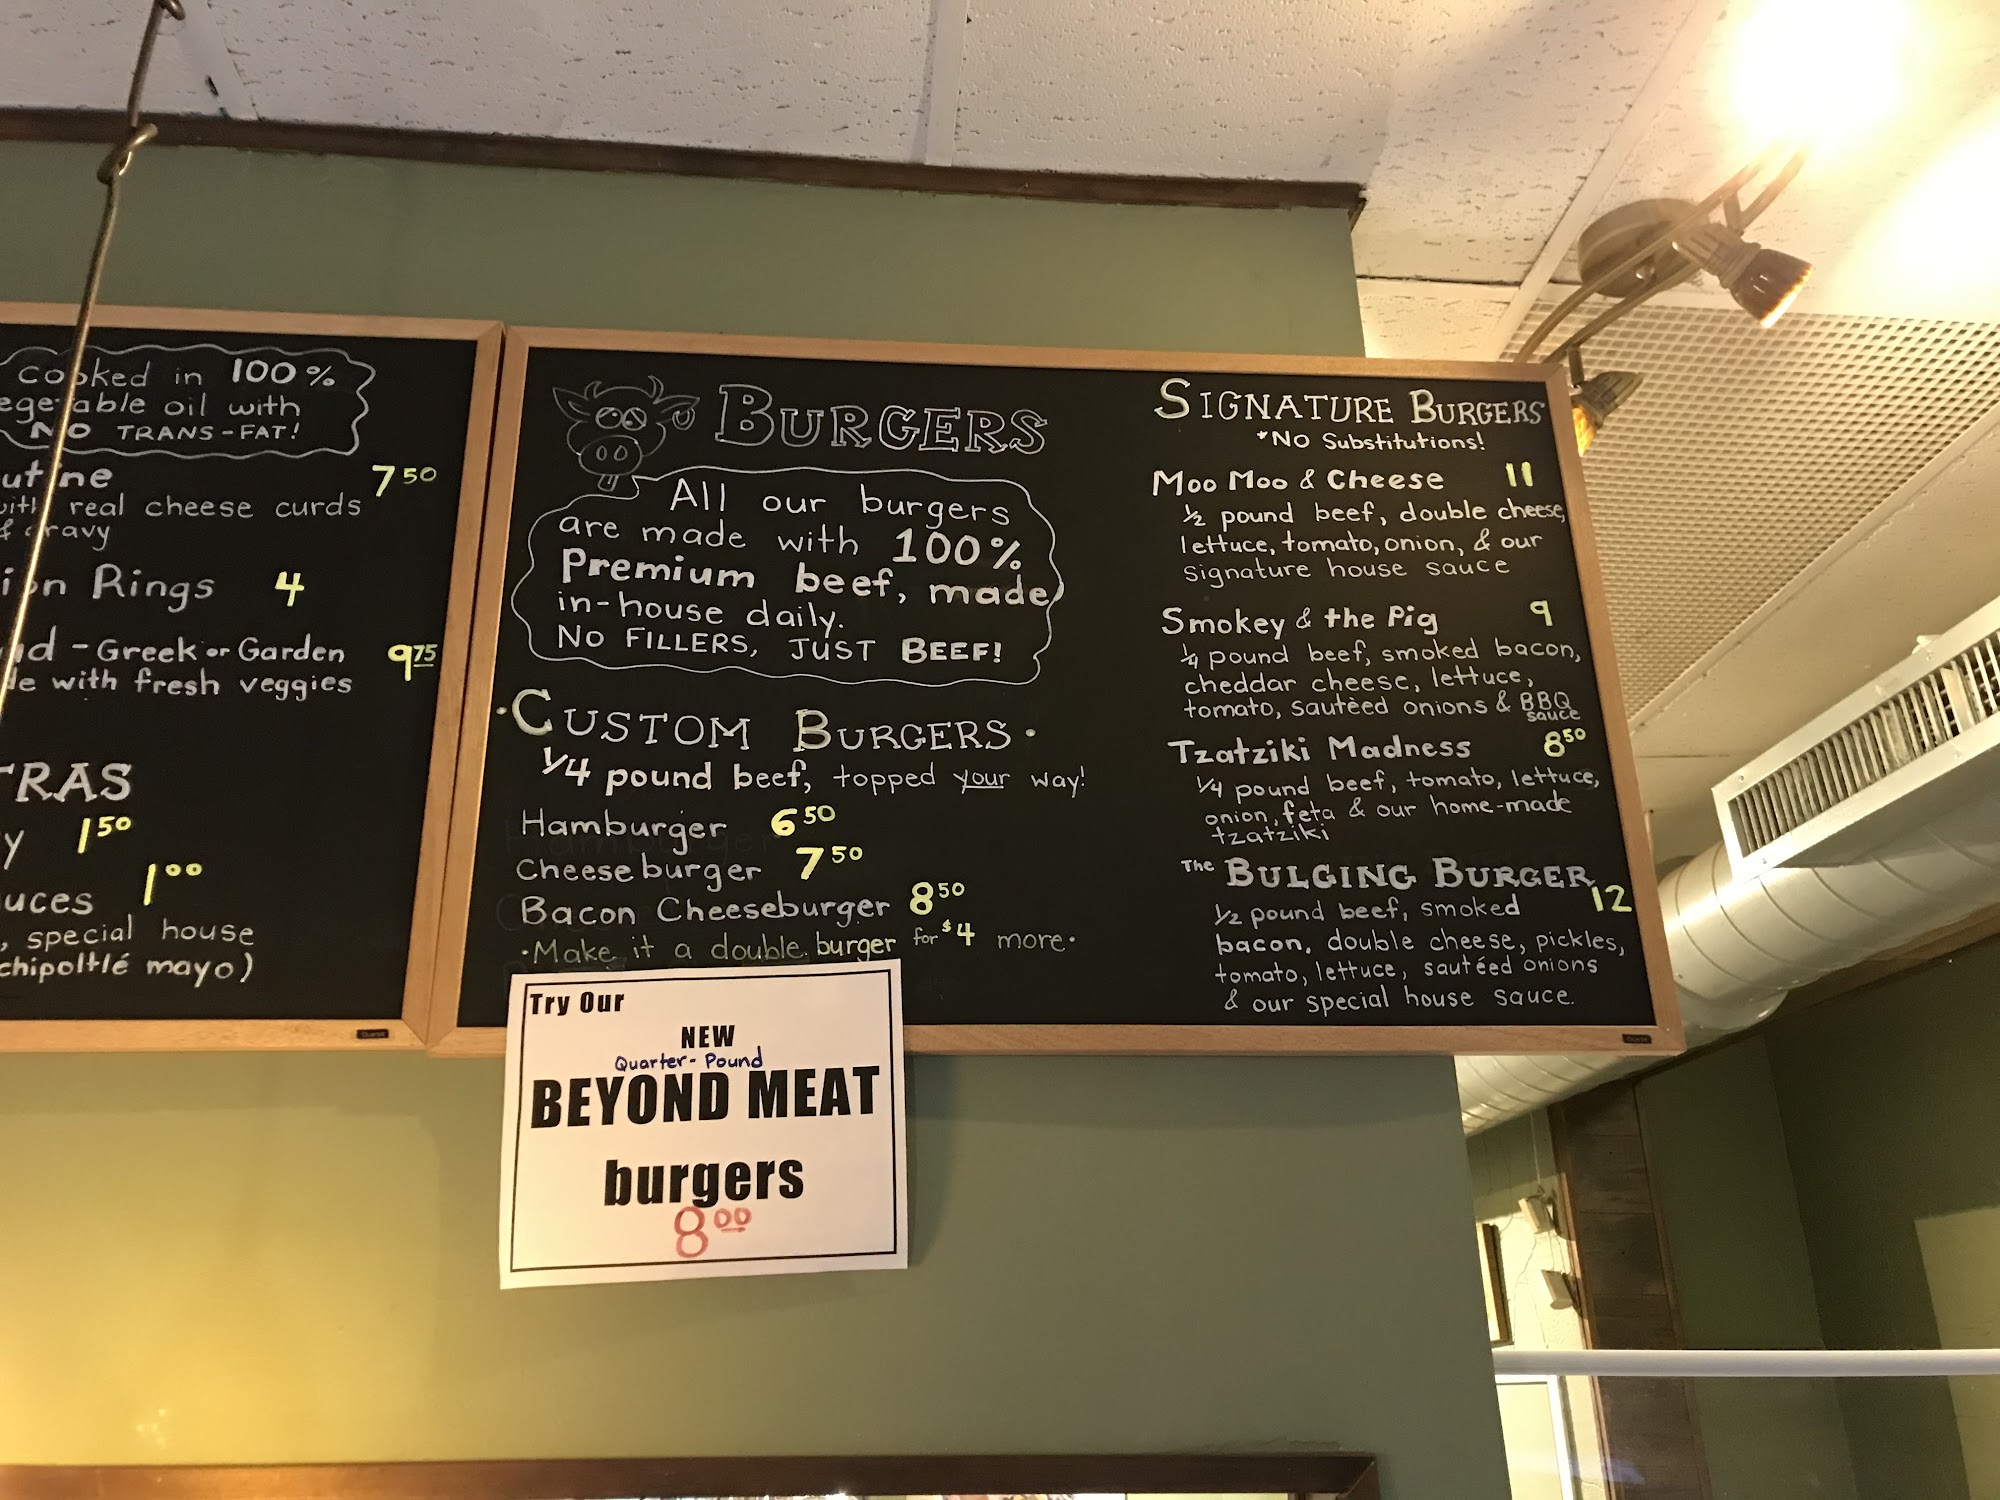 cooked in 100%
egetable oil with
NO TRANS-FAT!
utine 7 50
with real cheese curds
& gravy
ion Rings 4
ad - Greek or Garden 9 75
de with fresh veggies
TRAS
y 1 50
uces 1 00
, special house
chipoltlé mayo)
BURGERS
All our burgers
are made with 100%
Premium beef, made
in-house daily.
NO FILLERS, JUST BEEF!
·CUSTOM BURGERS·
1/4 pound beef, topped your way!
Hamburger 6 50
Cheeseburger 7 50
Bacon Cheeseburger 8 50
·Make it a double burger for $4 more·
SIGNATURE BURGERS
*No Substitutions!
Moo Moo & Cheese 11
1/2 pound beef, double cheese,
lettuce, tomato, onion, & our
signature house sauce
Smokey & the Pig 9
1/4 pound beef, smoked bacon,
cheddar cheese, lettuce,
tomato, sautèed onions & BBQ
sauce
Tzatziki Madness 8 50
1/4 pound beef, tomato, lettuce,
onion, feta & our home-made
tzatziki
The BULGING BURGER 12
1/2 pound beef, smoked
bacon, double cheese, pickles,
tomato, lettuce, sautéed onions
& our special house sauce.
Try Our
NEW
Quarter-Pound
BEYOND MEAT
burgers
8 00